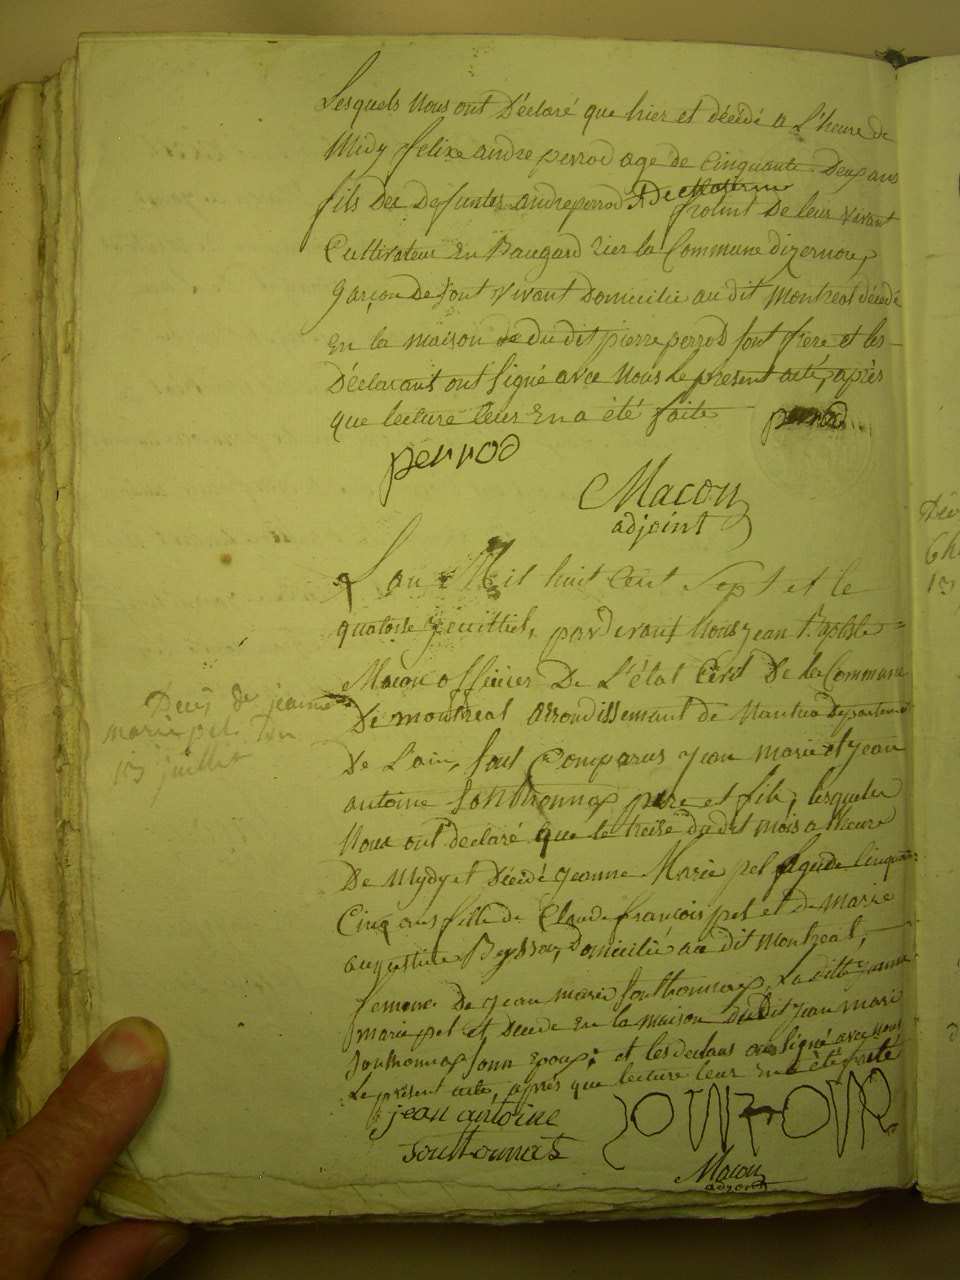 Lesquels Nous ont Déclaré que hier et décédé a L'heure de
Midy felixe andre perrod age de Cinquante Deux ans
fils Des Defuntes andre perrod & De frolint De leur vivant
Cultivateur En Baugard rier la Commune dizernou,
Garçon De sont vivant Domicilié au dit Montreal décédé
En la maison de du dit pierre perrod sont frere et les
Déclarants ont Signé avec Nous Le present acte, après
que lecture leur En a été faite perrod
perrod
Macon
adjoint
L'an Mil huit Cent Sept et le
quatorse juillet, pardevant Nous jean Baptiste
Macon officier De L'état Civil De la Commune
De montreal arrondissement de Nantua Departement
De L'ain, sont Comparus jean marie et jean
antoine Sonthonnax pere et fils, lesquels
Nous ont declaré que le treise du dit mois a lheure
De Mydy et Décédé jeanne Marie pel agée de Cinquante
Cinq ans fille de Claude françois pel et de Marie
augustine Domicilié au dit Montreal,
femme De jean marie Sonthonnax, La ditte jeanne
marie pel et Decede En la maison du Dit jean marie
Sonthonnax sonn Epoux; et les declarans ont signé avec nous
Le présent acte, après que lecture leur En a été faite
jean antoine
Sonthonnax
Macon
adjoint
Deces de jeanne
marie pel Du
13 juillet